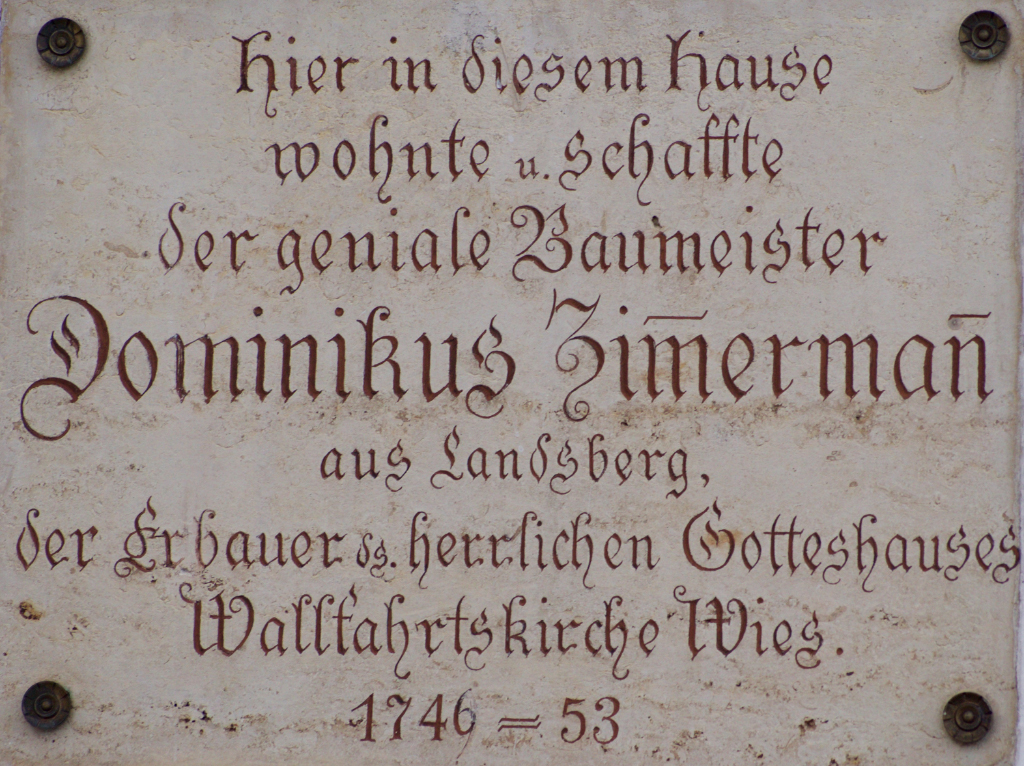 Hier in diesem Hause
wohnte u. schaffte
der geniale Baumeister
Dominikus Zim̅erman̅
aus Landsberg,
der Erbauer ds. herrlichen Gotteshauses
Wallfahrtskirche Wies.
1746 = 53